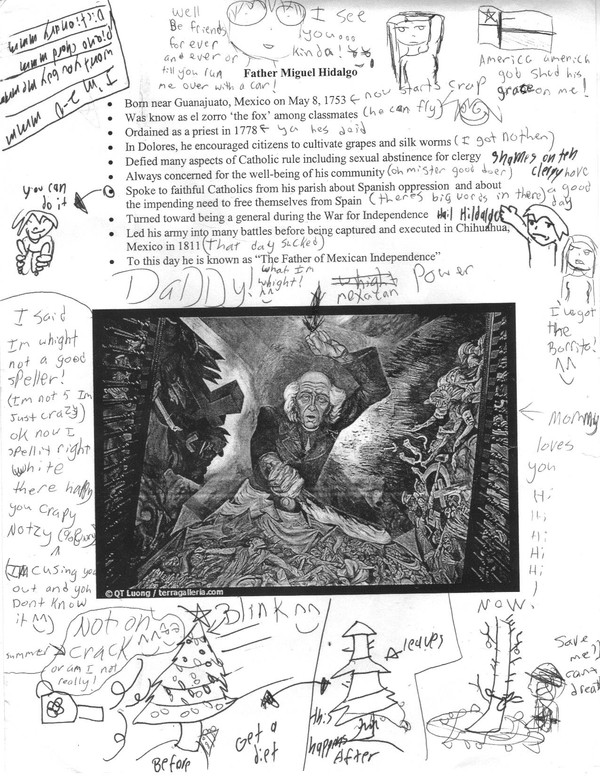 well
Be friends
for ever
and ever or
till you run
me over with a car!
I see
you...
kinda!
America america
god shed his
grace on me!
I'm 2-D
wont you buy me
piano chord
Dictionary
Father Miguel Hidalgo
• Born near Guanajuato, Mexico on May 8, 1753 now starts crap
• Was know as el zorro 'the fox' among classmates (he can fly)
• Ordained as a priest in 1778 ya hes daid
• In Dolores, he encouraged citizens to cultivate grapes and silk worms (I got nothen)
• Defied many aspects of Catholic rule including sexual abstinence for clergy shames on teh
clergy have
a good
day
• Always concerned for the well-being of his community (oh mister good doer)
• Spoke to faithful Catholics from his parish about Spanish oppression and about
the impending need to free themselves from Spain (theres big words in there)
• Turned toward being a general during the War for Independence Hail Hildaldo
• Led his army into many battles before being captured and executed in Chihuahua,
Mexico in 1811 (that day sucked)
• To this day he is known as "The Father of Mexican Independence"
you can
do it
Daddy!
what Im
whight!
^^
whight
mexatan
Power
I've got
the
Borrito!
^^
I said
Im whight
not a good
speller!
(Im not 5 Im
Just crazy)
ok now I
spell it right
white
there happy
you crapy
Notzy
(IM cusing you
out and you
Dont Know
it ^^)
Mommy
loves
you
Hi
Hi
Hi
Hi
Hi
!
© QT Luong / terragalleria.com
Not on
crack ^^
or am I not
really!
summer
Blink ^^
Before
Get a
diet
this
happens
After
leaves
NOW!
Save
me!
cant
breath